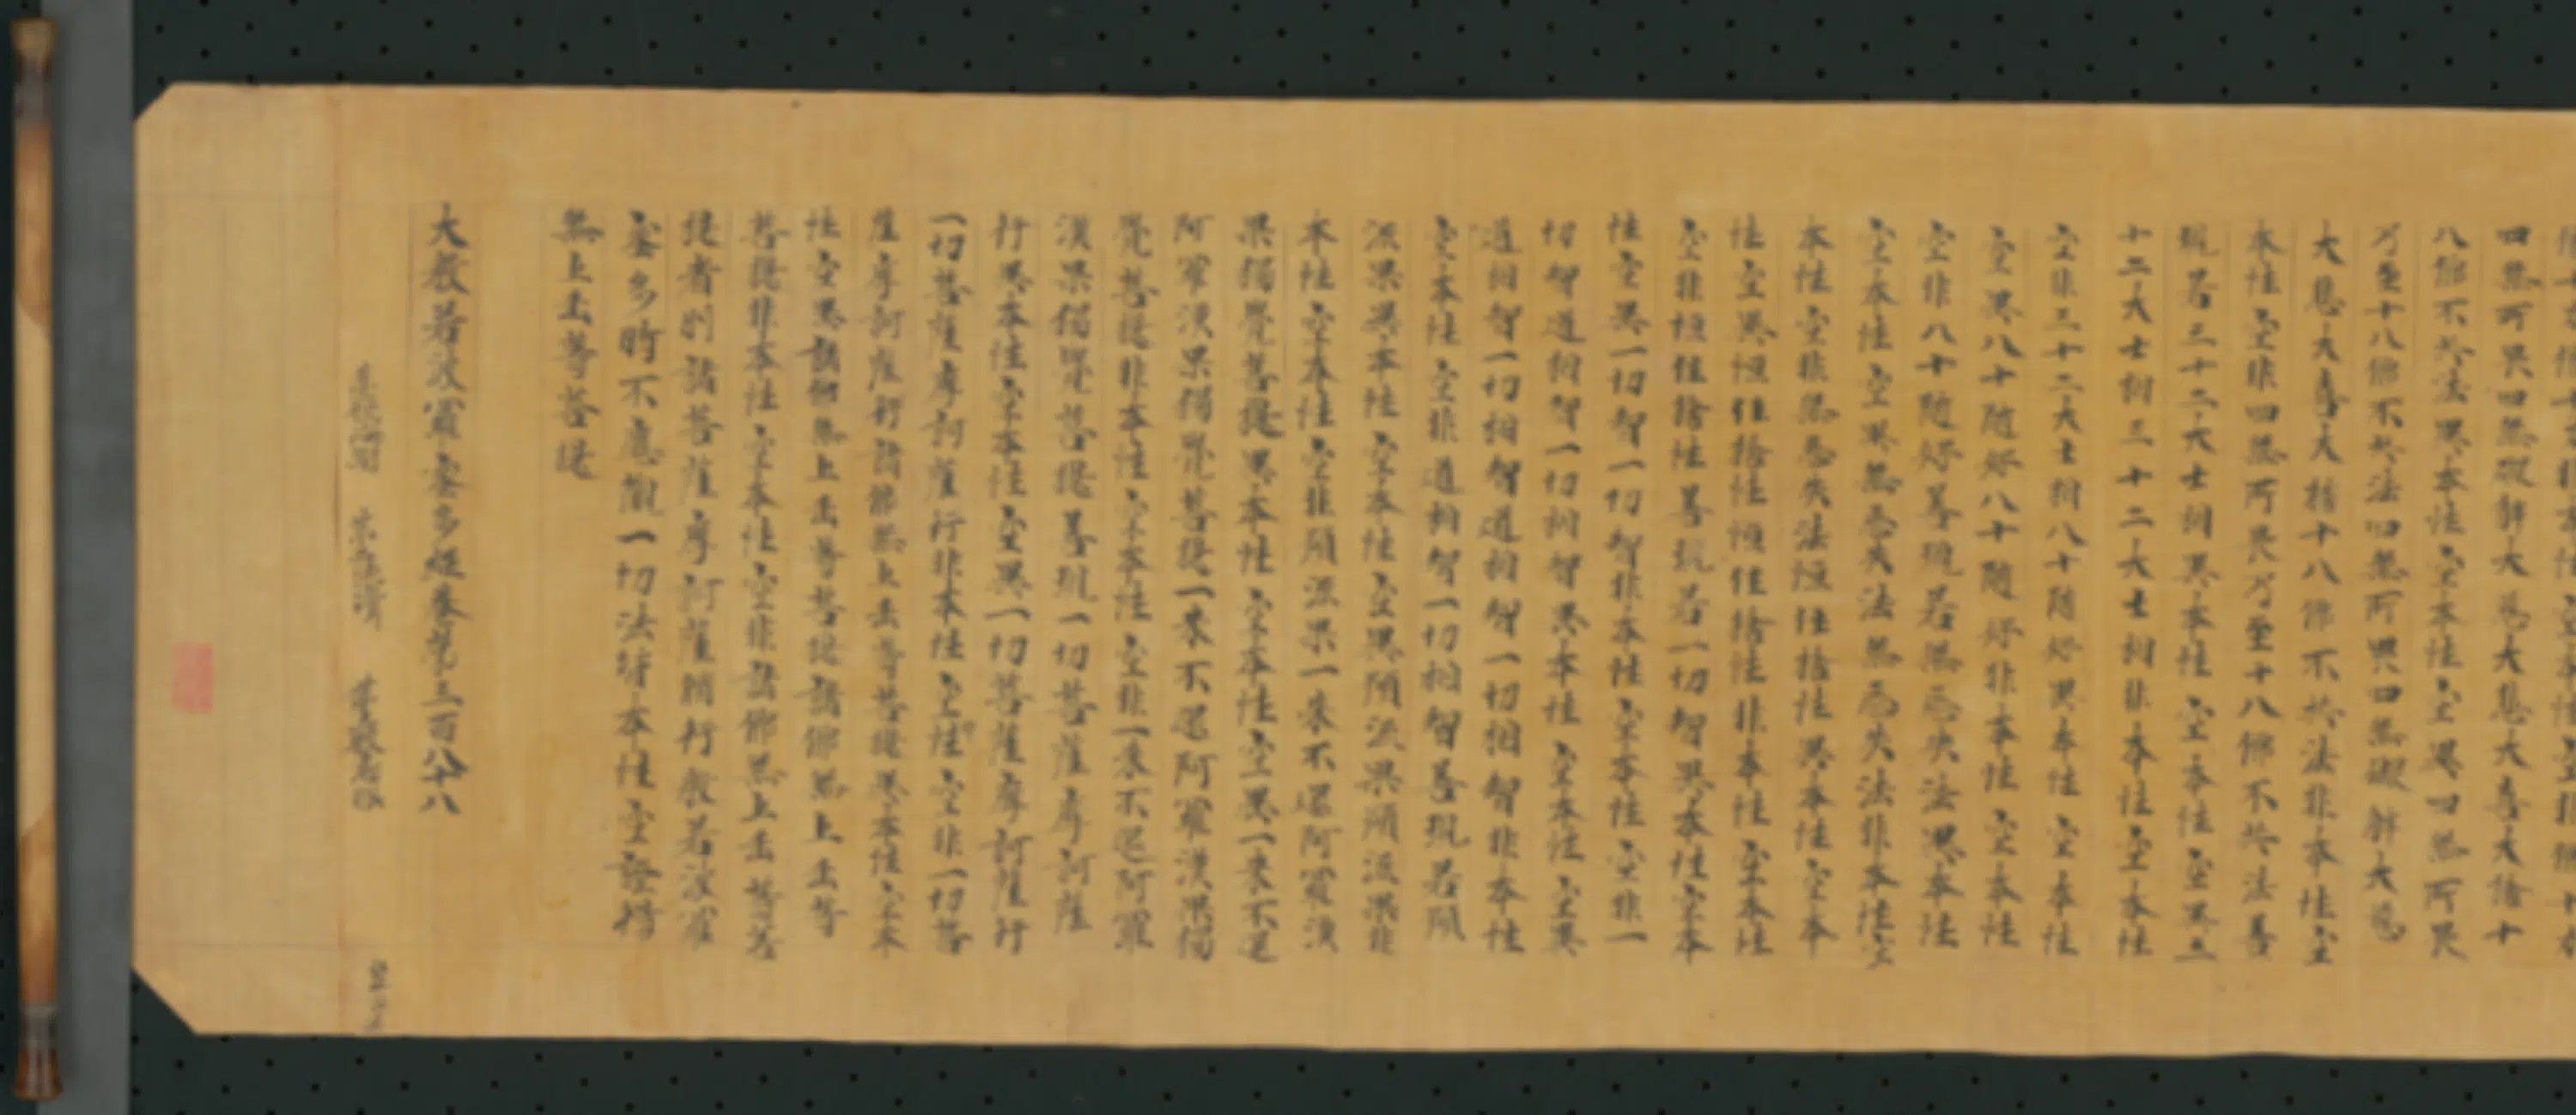 四無所畏四無礙解大慈大悲大喜大捨十
八佛不共法異本性空本性空異四無所畏
乃至十八佛不共法四無所畏四無礙解大慈
大悲大喜大捨十八佛不共法非本性空
本性空非四無所畏乃至十八佛不共法善
現若三十二大士相異本性空本性空異三
十二大士相三十二大士相非本性空本性
空非三十二大士相八十隨好異本性空本性
空異八十隨好八十隨好非本性空本性
空非八十隨好善現若無忘失法異本性
空本性空異無忘失法無忘失法非本性空
本性空非無忘失法恒住捨性異本性空本
性空異恒住捨性恒住捨性非本性空本性
空非恒住捨性善現若一切智異本性空本
性空異一切智一切智非本性空本性空非一
切智道相智一切相智異本性空本性空異
道相智一切相智道相智一切相智非本性
空本性空非道相智一切相智善現若預
流果異本性空本性空異預流果預流果非
本性空本性空非預流果一來不還阿羅漢
果獨覺菩提異本性空本性空異一來不還
阿羅漢果獨覺菩提一來不還阿羅漢果獨
覺菩提非本性空本性空非一來不還阿羅
漢果獨覺菩提善現一切菩薩摩訶薩
行異本性空本性空異一切菩薩摩訶薩行
一切菩薩摩訶薩行非本性空性空非一切菩
薩摩訶薩行諸佛無上正等菩提異本性空本
性空異諸佛無上正等菩提諸佛無上正等
菩提非本性空本性空非諸佛無上正等菩
提者則諸菩薩摩訶薩行般若波羅
蜜多時不應觀一切法皆本性空證得
無上正等菩提
大般若波羅蜜多經卷第三百八十八